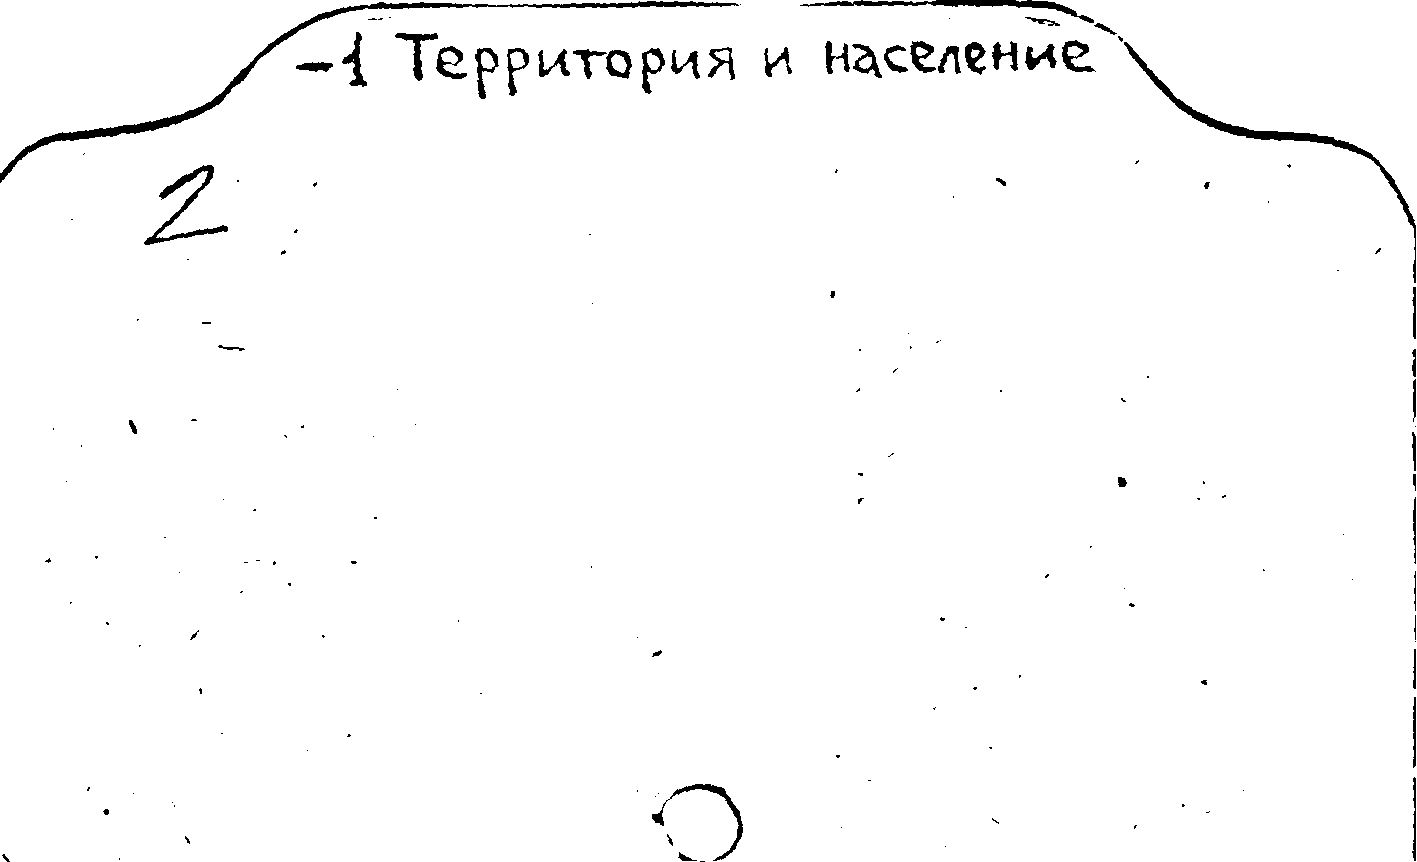 -1 Территория и население
2